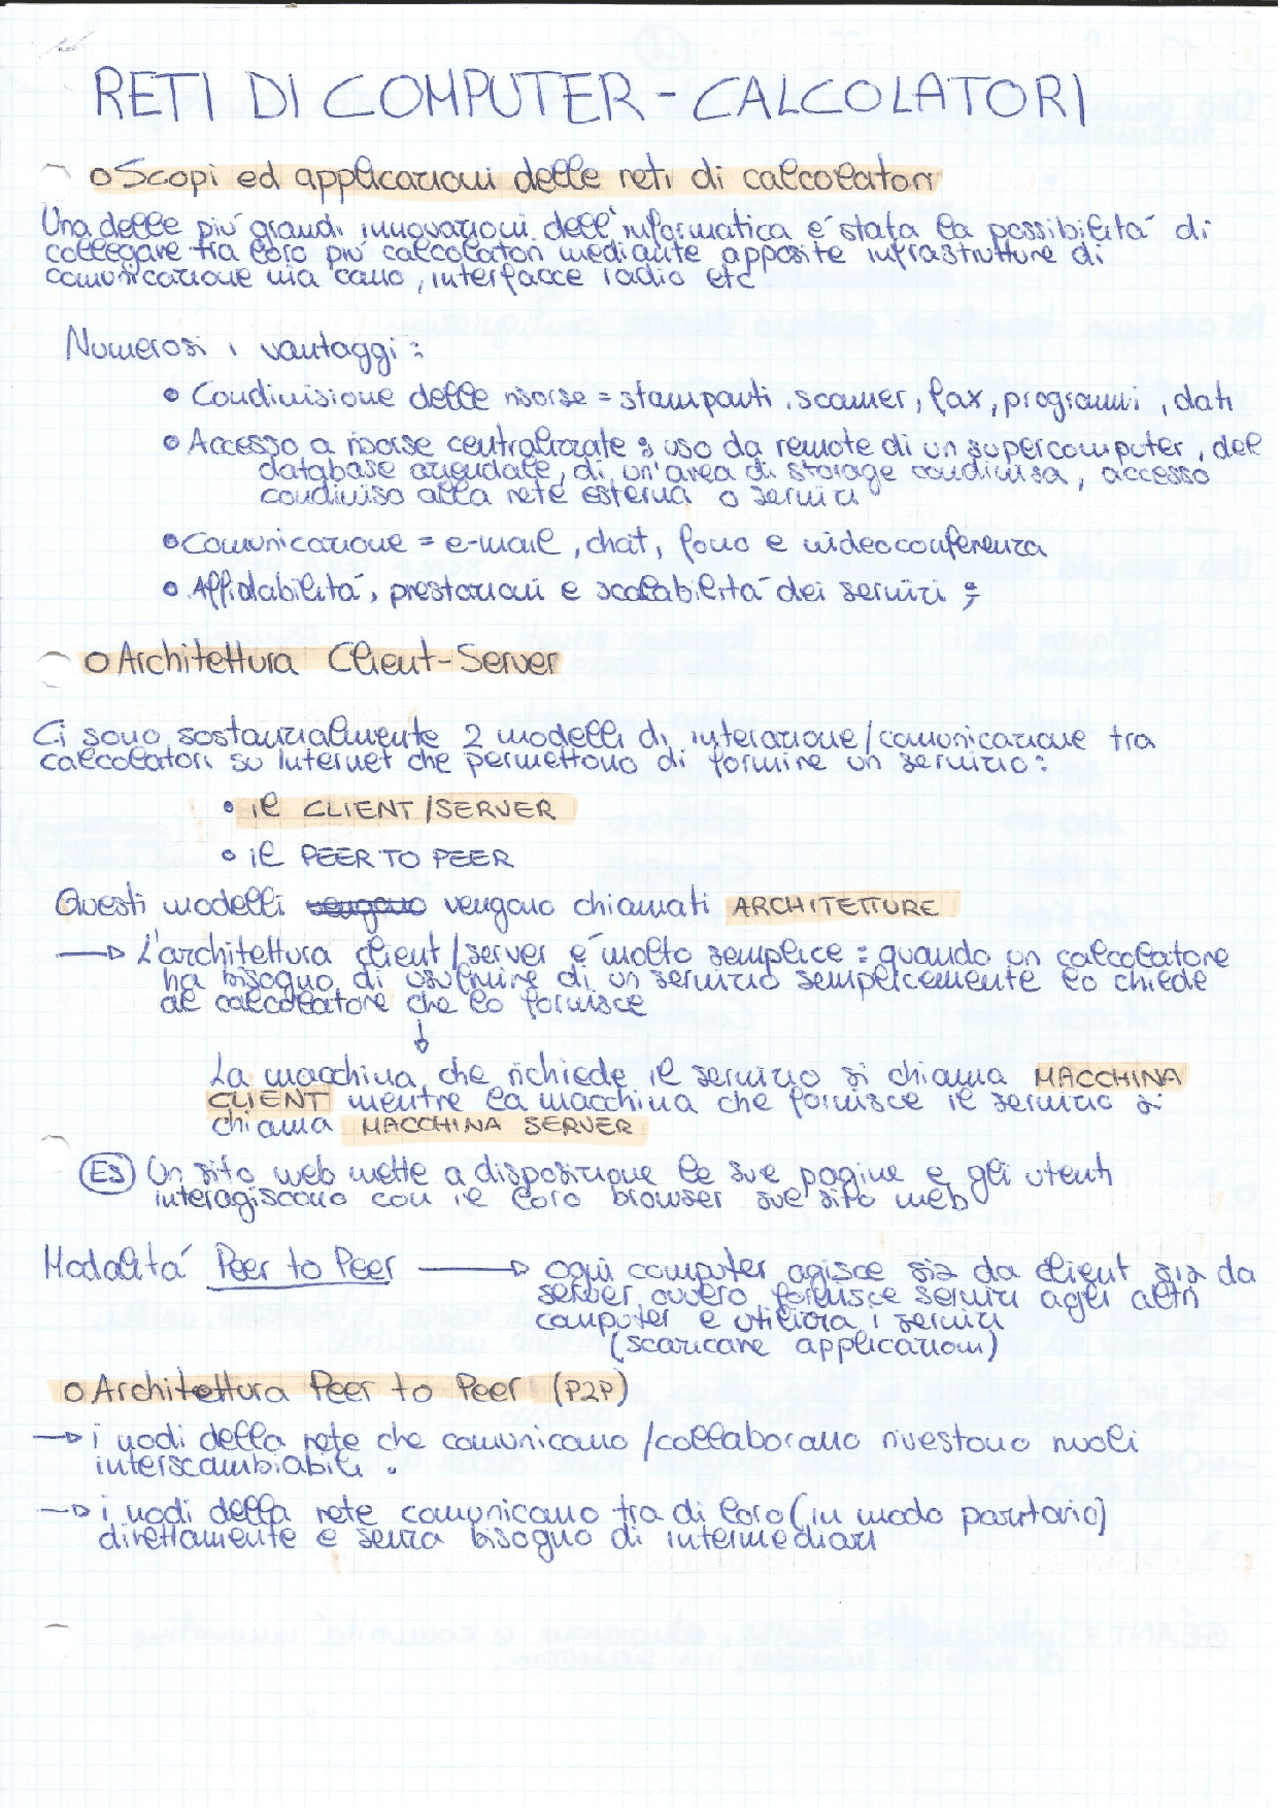 RETI DI COMPUTER - CALCOLATORI
o Scopi ed applicazioni delle reti di calcolatori
Una delle piú grandi innovazioni dell'informatica é stata la possibilitá di
collegare tra loro piú calcolatori mediante apposite infrastrutture di
comunicazione via cavo, interfacce radio etc
Numerosi i vantaggi:
• Condivisione delle risorse = stampanti, scanner, fax, programmi, dati
• Accesso a risorse centralizzate : uso da remote di un supercomputer, del
database aziendale, di un'area di storage condivisa, accesso
condiviso alla rete esterna o servizi
• Comunicazione = e-mail, chat, fono e videoconferenza
• Affidabilitá, prestazioni e scalabilitá dei servizi ;
o Architettura Client-Server
Ci sono sostanzialmente 2 modelli di interazione/comunicazione tra
calcolatori su Internet che permettono di fornire un servizio:
• il CLIENT/SERVER
• il PEER TO PEER
Questi modelli vengono vengono chiamati ARCHITETTURE
→ L'architettura client/server é molto semplice : quando un calcolatore
ha bisogno di usufruire di un servizio semplicemente lo chiede
al calcolatore che lo fornisce
↓
La macchina che richiede il servizio si chiama MACCHINA
CLIENT mentre la macchina che fornisce il servizio si
chiama MACCHINA SERVER
Es Un sito web mette a disposizione le sue pagine e gli utenti
interagiscono con il loro browser sul sito web
Modalitá Peer to Peer → ogni computer agisce sia da client sia da
server ovvero fornisce servizi agli altri
computer e utilizza i servizi
(scaricare applicazioni)
o Architettura Peer to Peer (P2P)
→ i nodi della rete che comunicano/collaborano rivestono ruoli
interscambiabili.
→ i nodi della rete comunicano tra di loro (in modo paritario)
direttamente e senza bisogno di intermediari